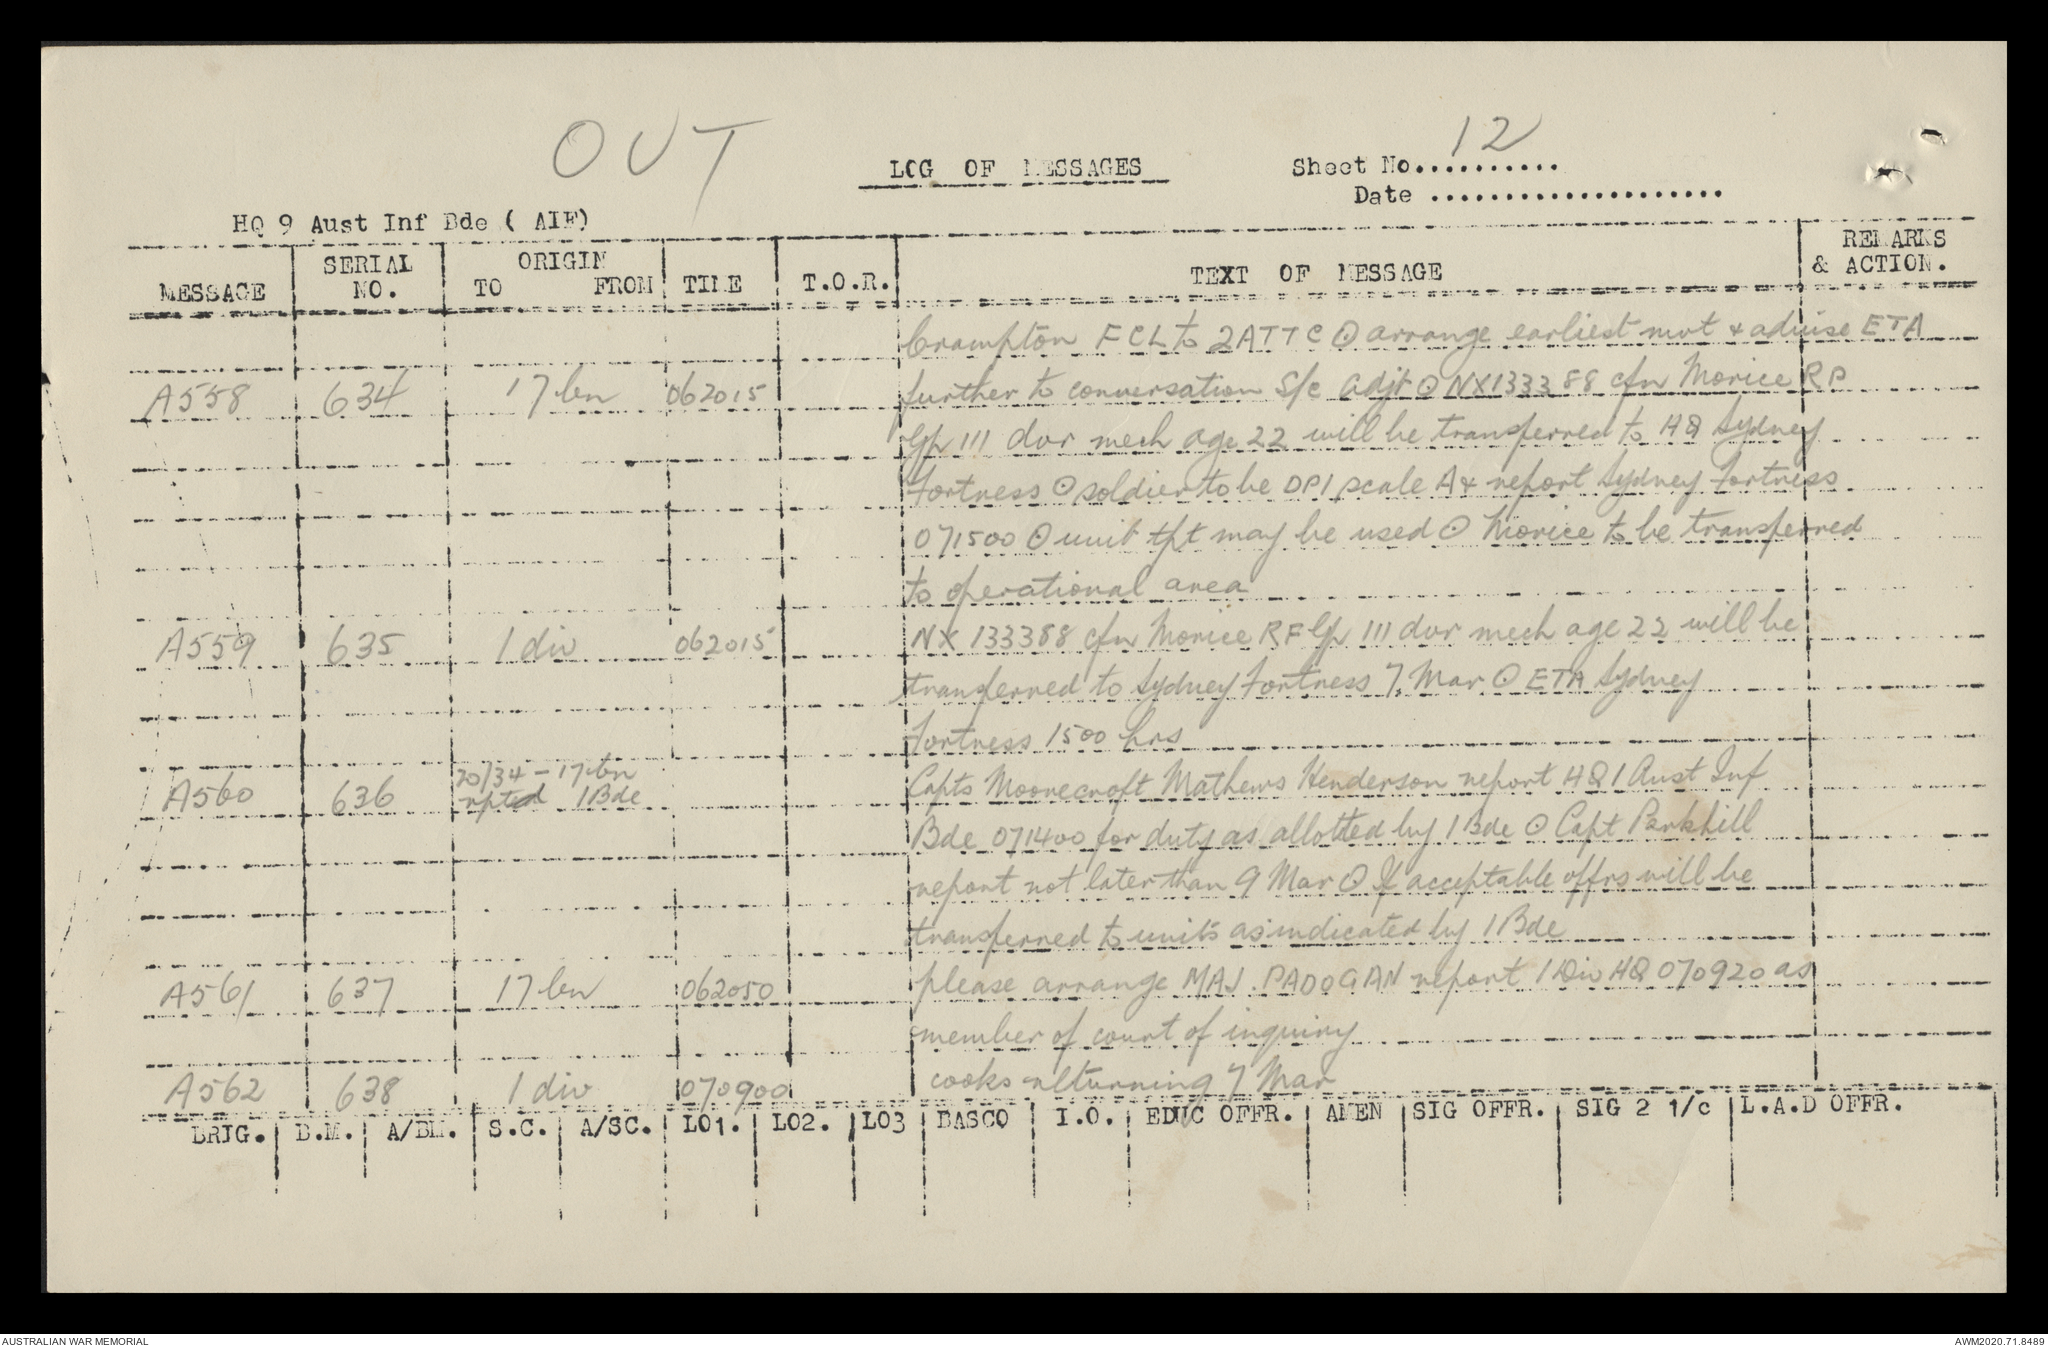 OUT
LOG OF MESSAGES
Sheet No........... 12
Date .....................
HQ 9 Aust Inf Bde ( AIF)
MESSAGE SERIAL NO. ORIGIN TO FROM TIME T.O.R. TEXT OF MESSAGE REMARKS & ACTION.
Crampton FCL to 2ATTC ⊙ arrange earliest mvt & advise ETA
A558 634 17 bn 062015 further to conversation S/c adjt ⊙ NX133388 cfn Morice RP
Gp 111 dvr mech age 22 will be transferred to HQ Sydney
Fortress ⊙ soldier to be DP1 scale A & report Sydney Fortress
071500 ⊙ unit tpt may be used ⊙ Morice to be transferred
to operational area
A559 635 1 div 062015 NX 133388 cfn Morice RF Gp 111 dvr mech age 22 will be
transferred to Sydney Fortress 7 Mar ⊙ ETA Sydney
Fortress 1500 hrs
A560 636 20/34 - 17 bn rptd 1 Bde Capts Moorecroft Mathews Henderson report HQ 1 Aust Inf
Bde 071400 for duty as allotted by 1 Bde ⊙ Capt Parkhill
report not later than 9 Mar ⊙ If acceptable offrs will be
transferred to units as indicated by 1 Bde
A561 637 17 bn 062050 please arrange MAJ. PADOGAN report 1 Div HQ 070920 as
member of court of inquiry
A562 638 1 div 070900 cooks returning 7 Mar
BRIG. B.M. A/BM. S.C. A/SC. LO1. LO2. LO3 BASCO I.O. EDUC OFFR. AMEN SIG OFFR. SIG 2 1/c L.A.D OFFR.
AUSTRALIAN WAR MEMORIAL AWM2020.71.8489